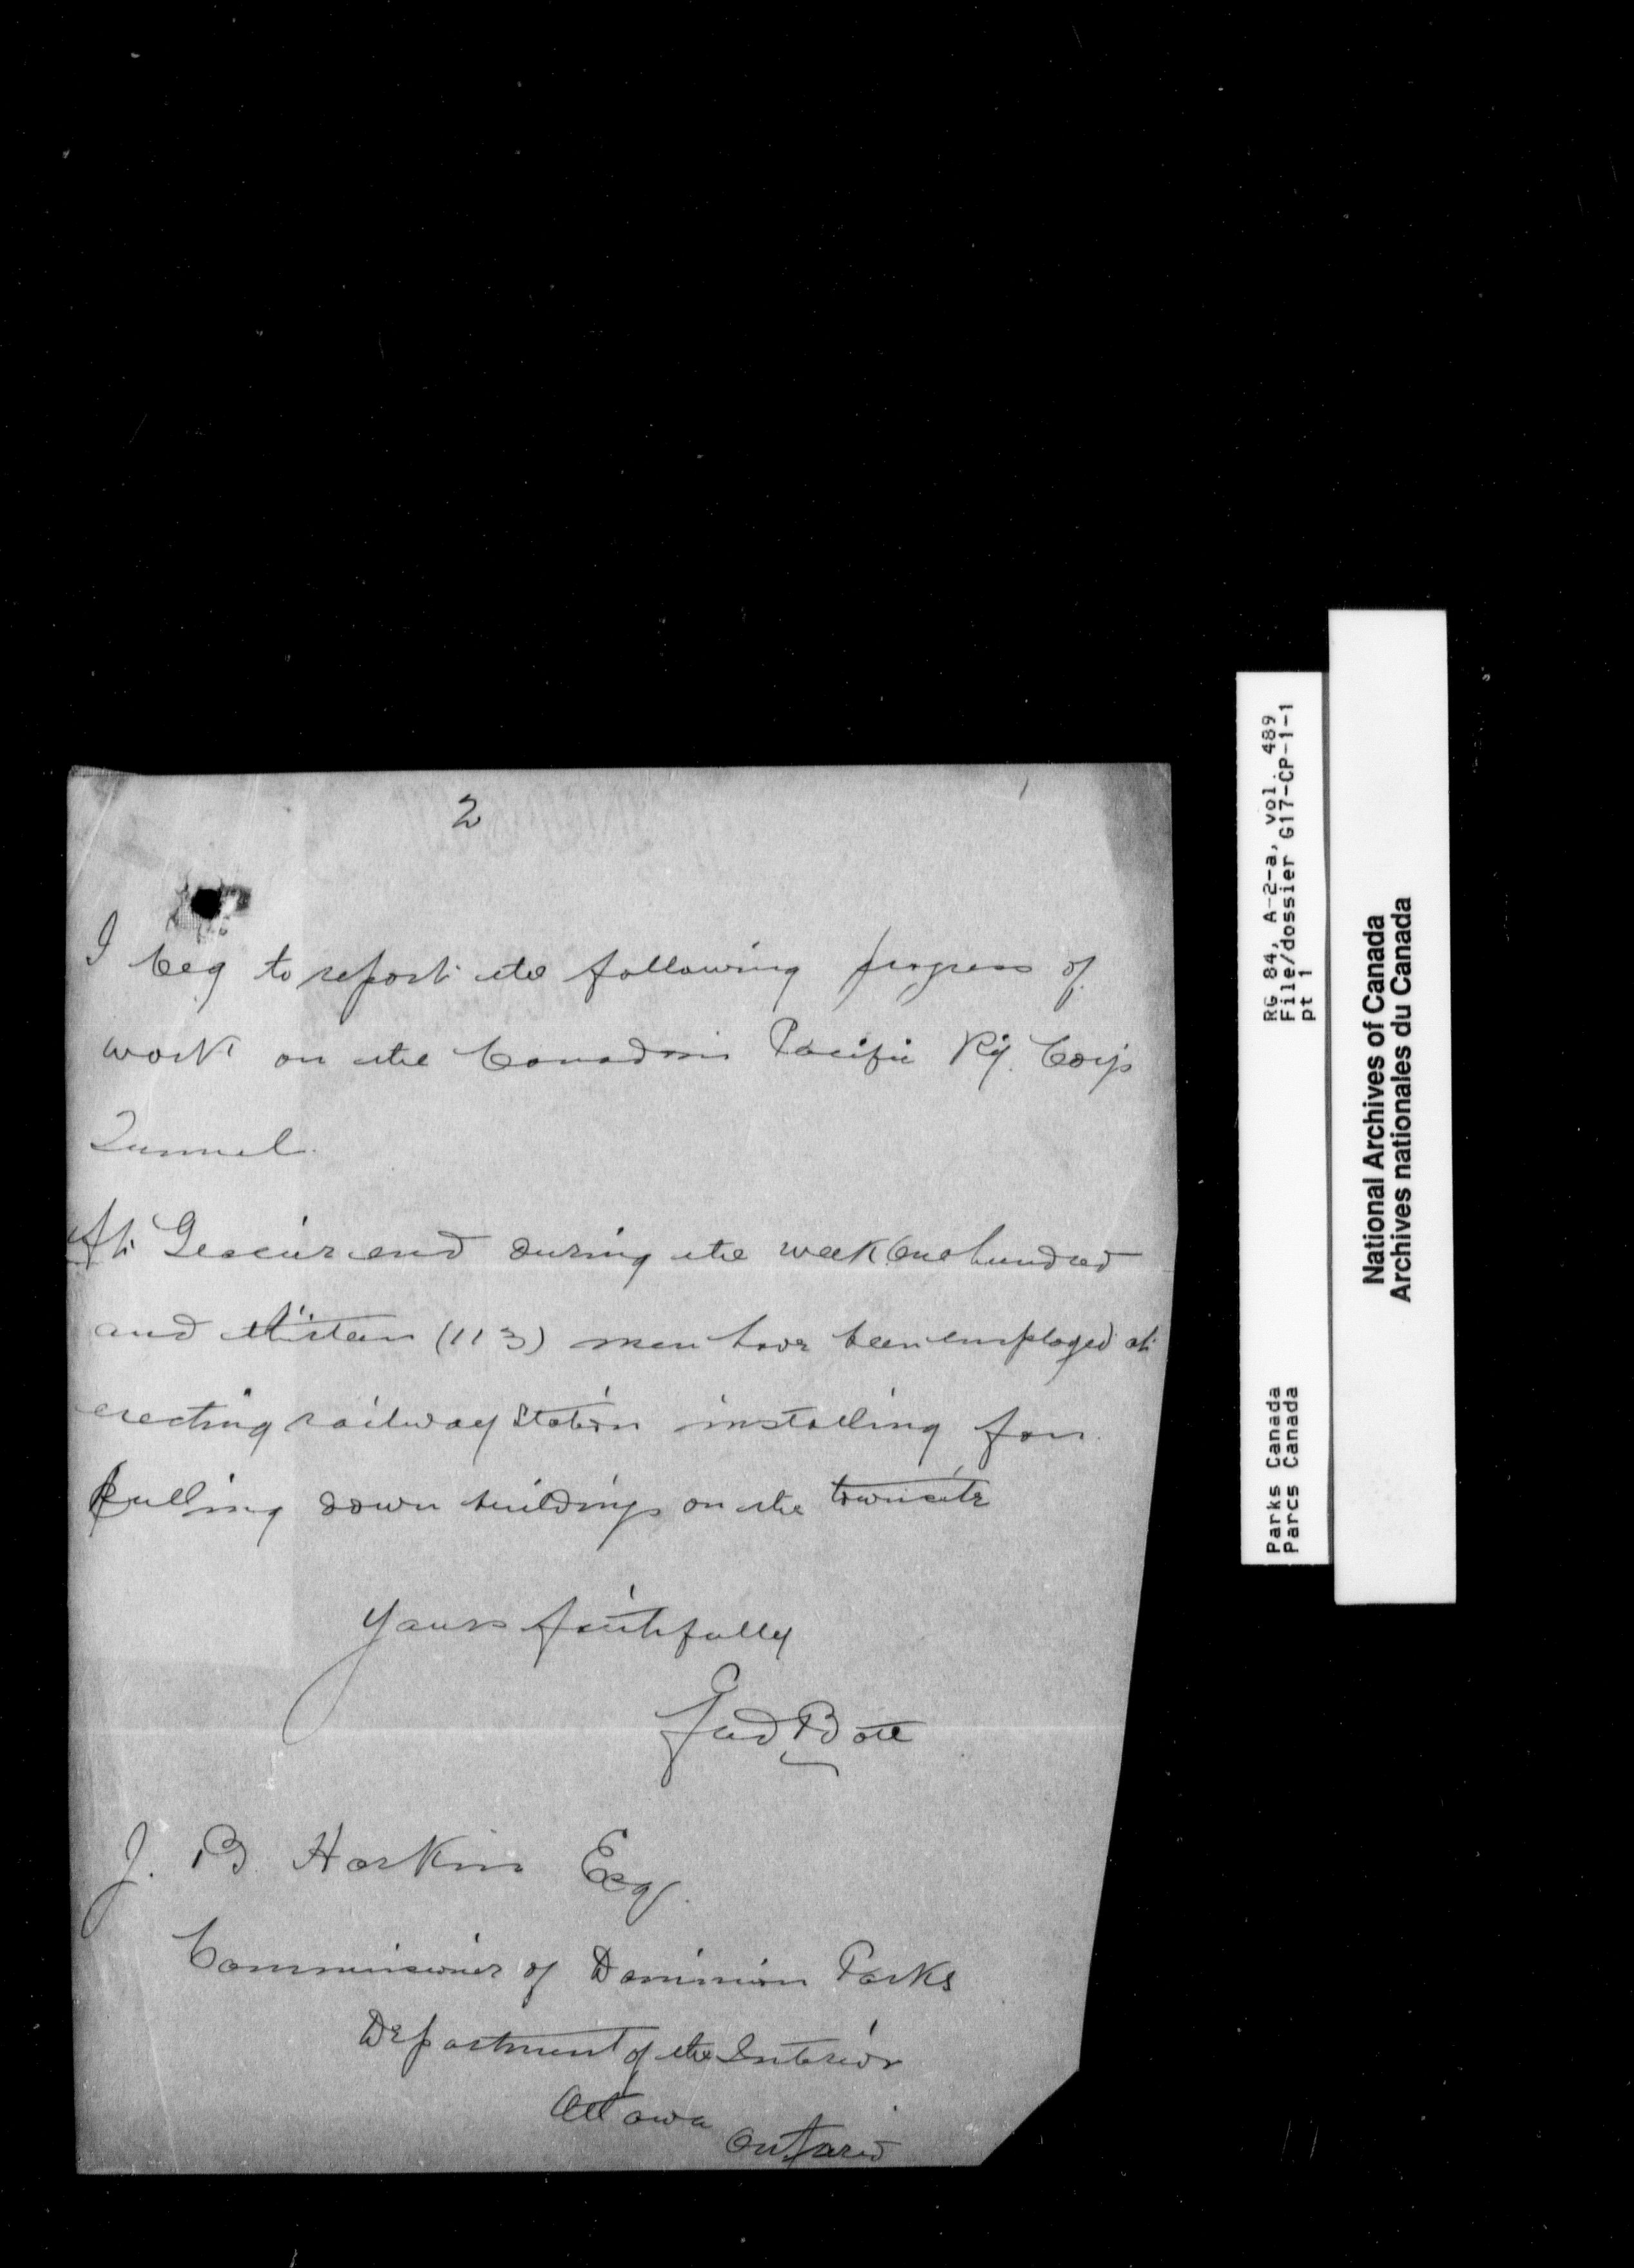 2
I beg to report the following progress of
work on the Canadian Pacific Ry. Coy's
Tunnel.
At Glacier end during the week one hundred
and thirteen (113) men have been employed at
erecting railway station installing fan
pulling down buildings on the townsite
Yours faithfully
Fred Bott
J. B. Harkin Esq.
Commissioner of Dominion Parks
Department of the Interior
Ottawa
Ontario
RG 84, A-2-a, vol. 489
File/dossier G17-CP-1-1
pt 1
Parks Canada
Parcs Canada
National Archives of Canada
Archives nationales du Canada